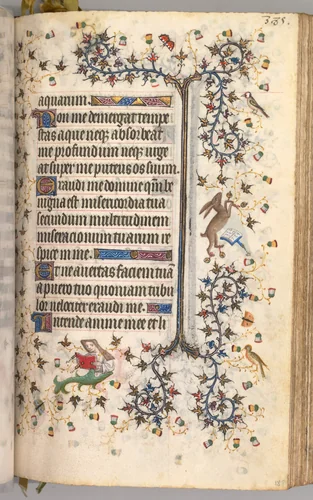 338.
aquarum.
Non me demergat tempe
stas aque neq; absorbeat
me profundum neq; urge
at super me puteus os suum.
Exaudi me domine qm be
nigna est misericordia tua
secundum multitudinem
miseracionum tuarum re
spice in me.
Et ne avertas faciem tuā
a puero tuo quoniam tribu
lor velociter exaudi me.
Intende anime mee et li